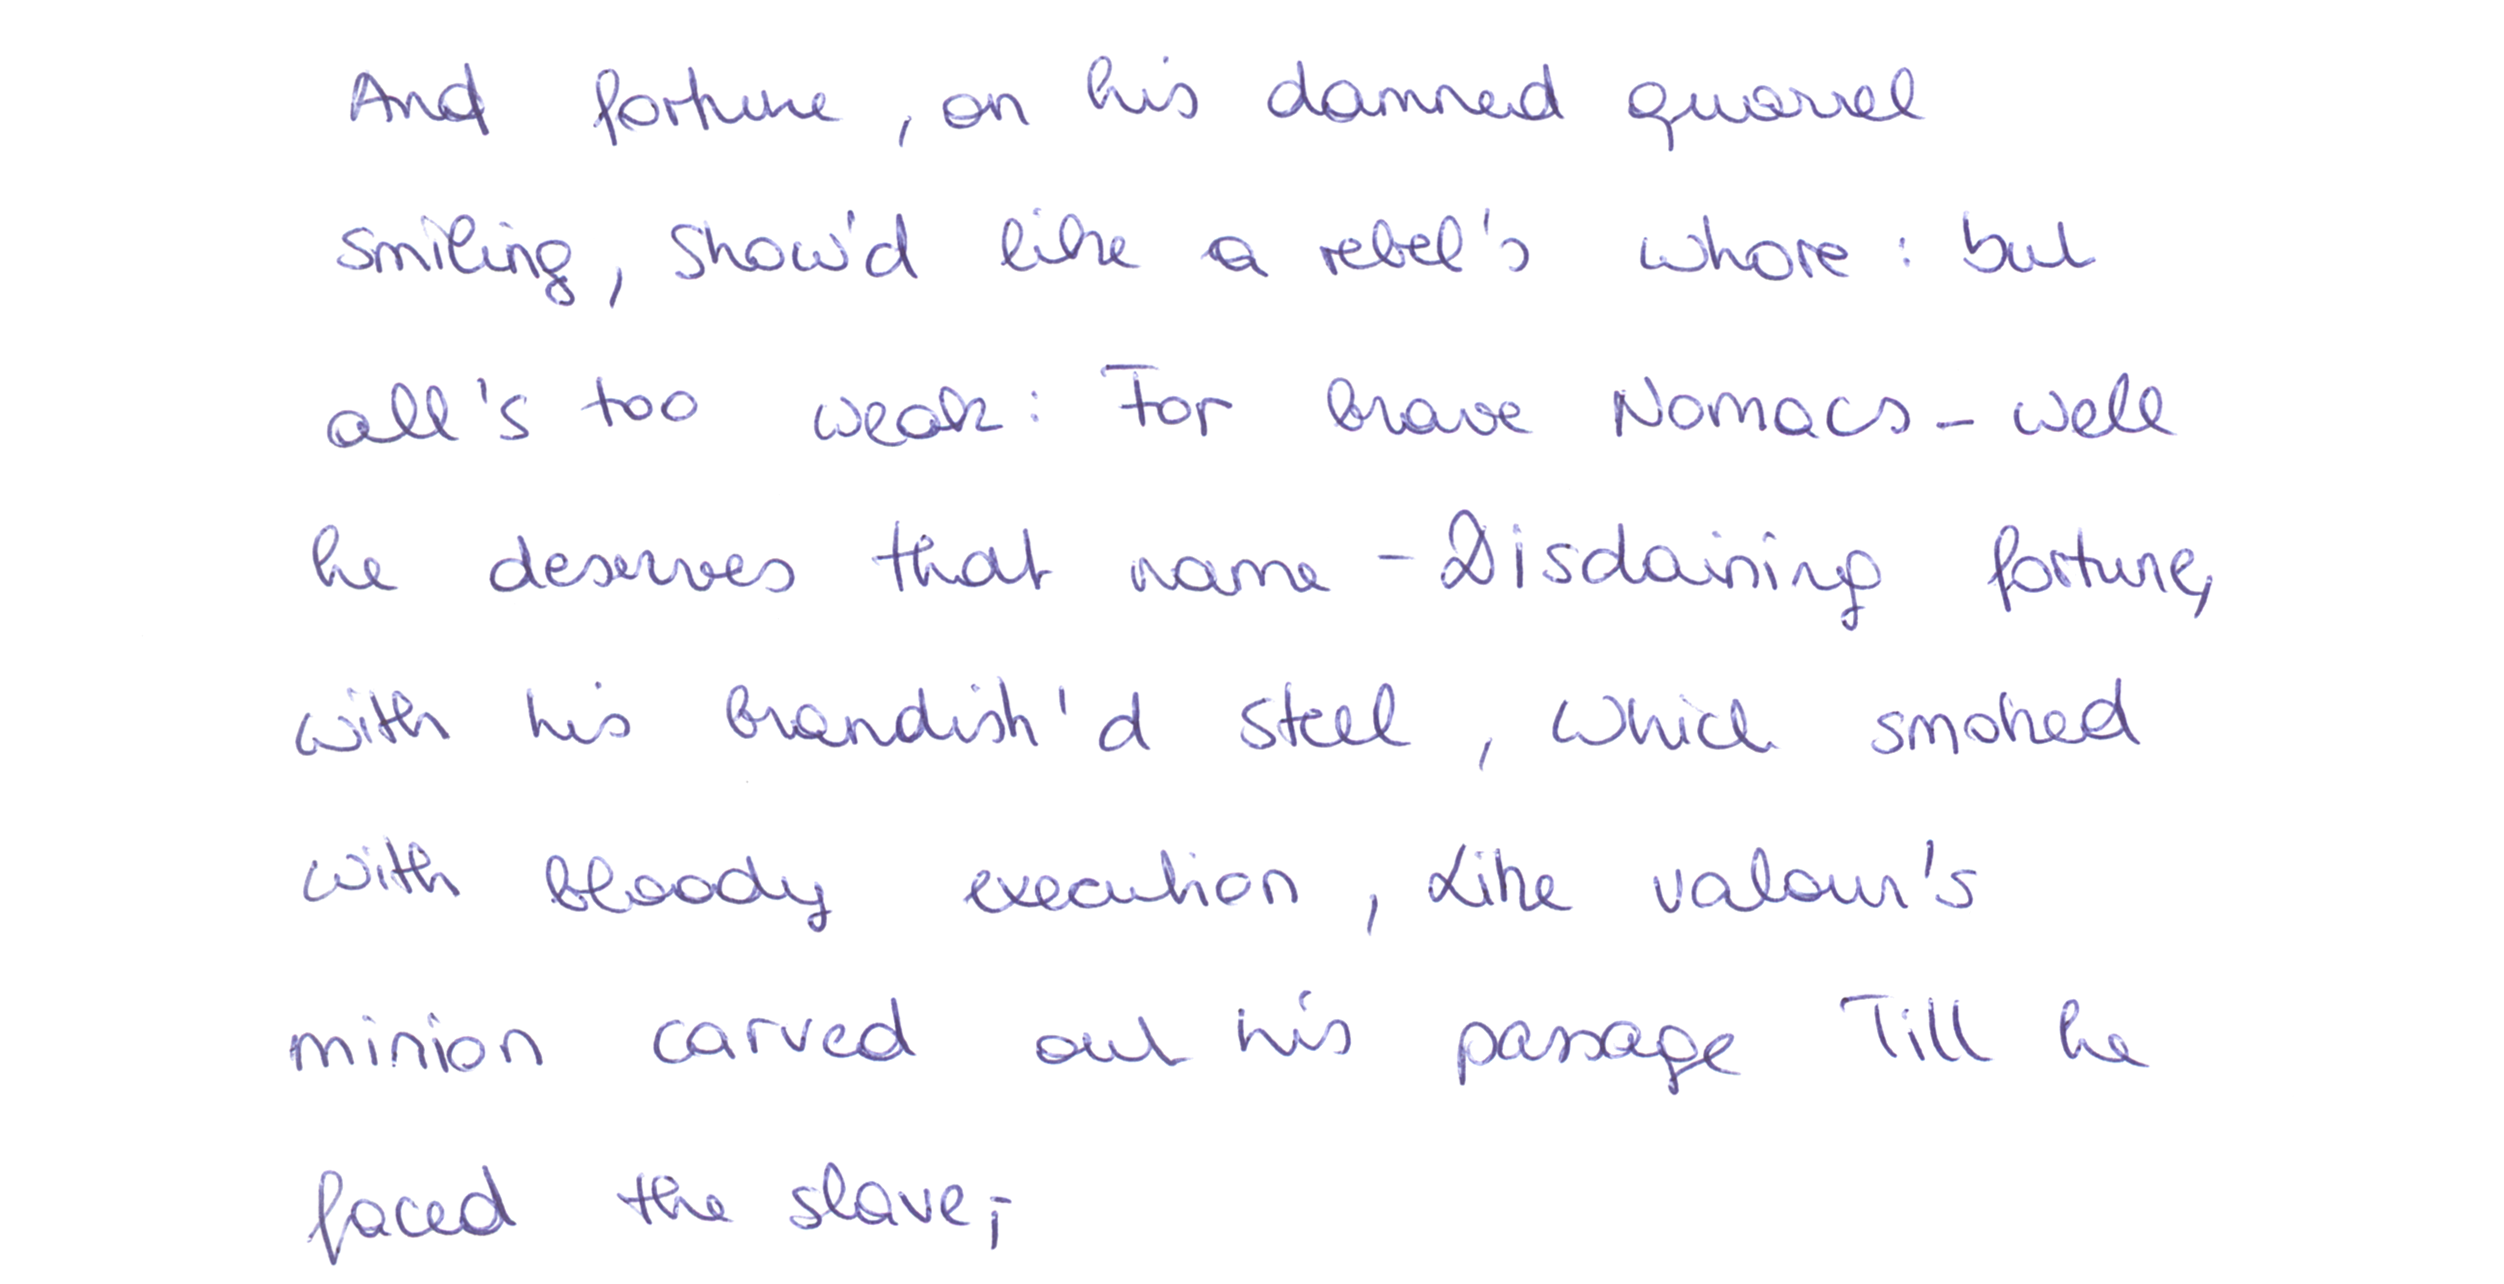 And fortune, on his damned quarrel
smiling, Show'd like a rebel's whore: but
all's too weak: For brave Nomacs - well
he deserves that name - Disdaining fortune,
with his brandish'd steel, which smoked
with bloody execution, Like valour's
minion carved out his passage Till he
faced the slave;